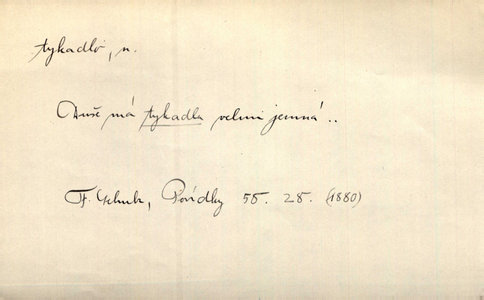 tykadlo, n.
Duše má tykadla velmi jemná..
F. Schulz, Povídky 55. 28. (1880)